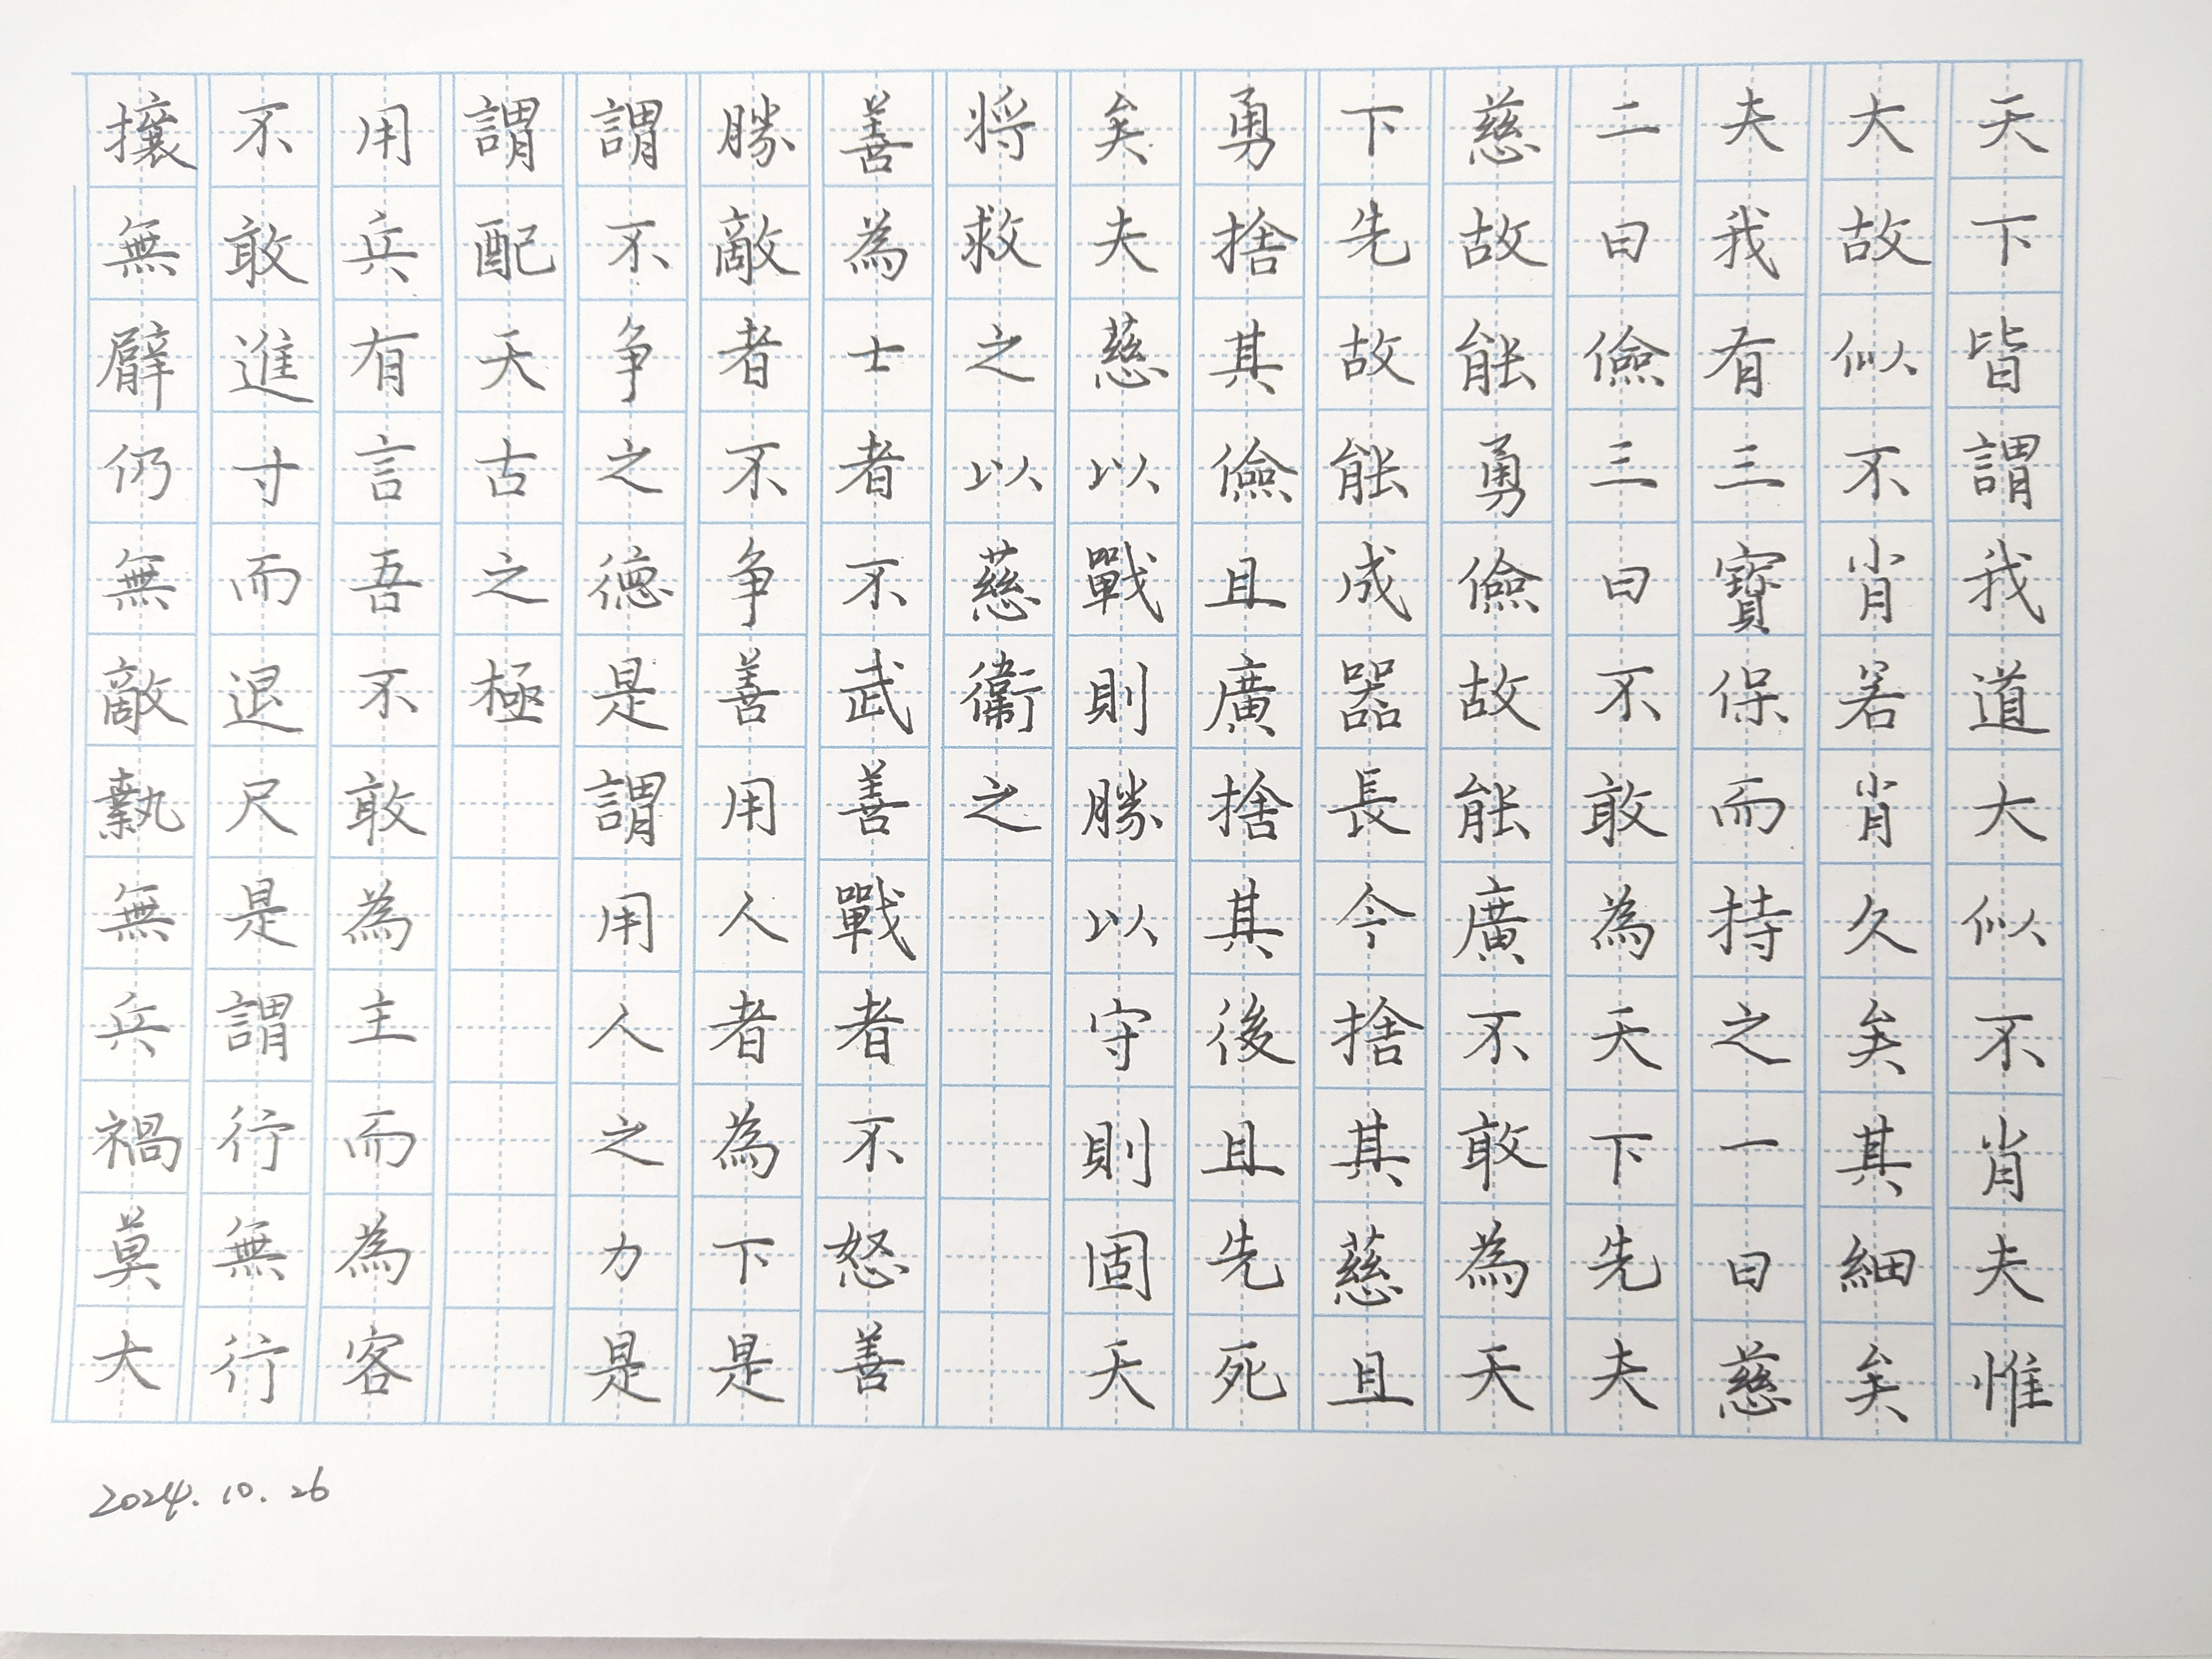 天下皆謂我道大似不肖夫惟
大故似不肖若肖久矣其細矣
夫我有三寳保而持之一曰慈
二曰儉三曰不敢為天下先夫
慈故能勇儉故能廣不敢為天
下先故能成器長今捨其慈且
勇捨其儉且廣捨其後且先死
矣夫慈以戰則勝以守則固天
将救之以慈衛之
善為士者不武善戰者不怒善
勝敵者不争善用人者為下是
謂不争之德是謂用人之力是
謂配天古之極
用兵有言吾不敢為主而為客
不敢進寸而退尺是謂行無行
攘無臂仍無敵執無兵禍莫大
2024.10.26